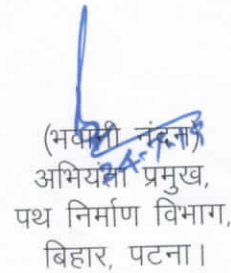 (भवानी नंदन)
24-7-18
अभियंता प्रमुख,
पथ निर्माण विभाग,
बिहार, पटना।